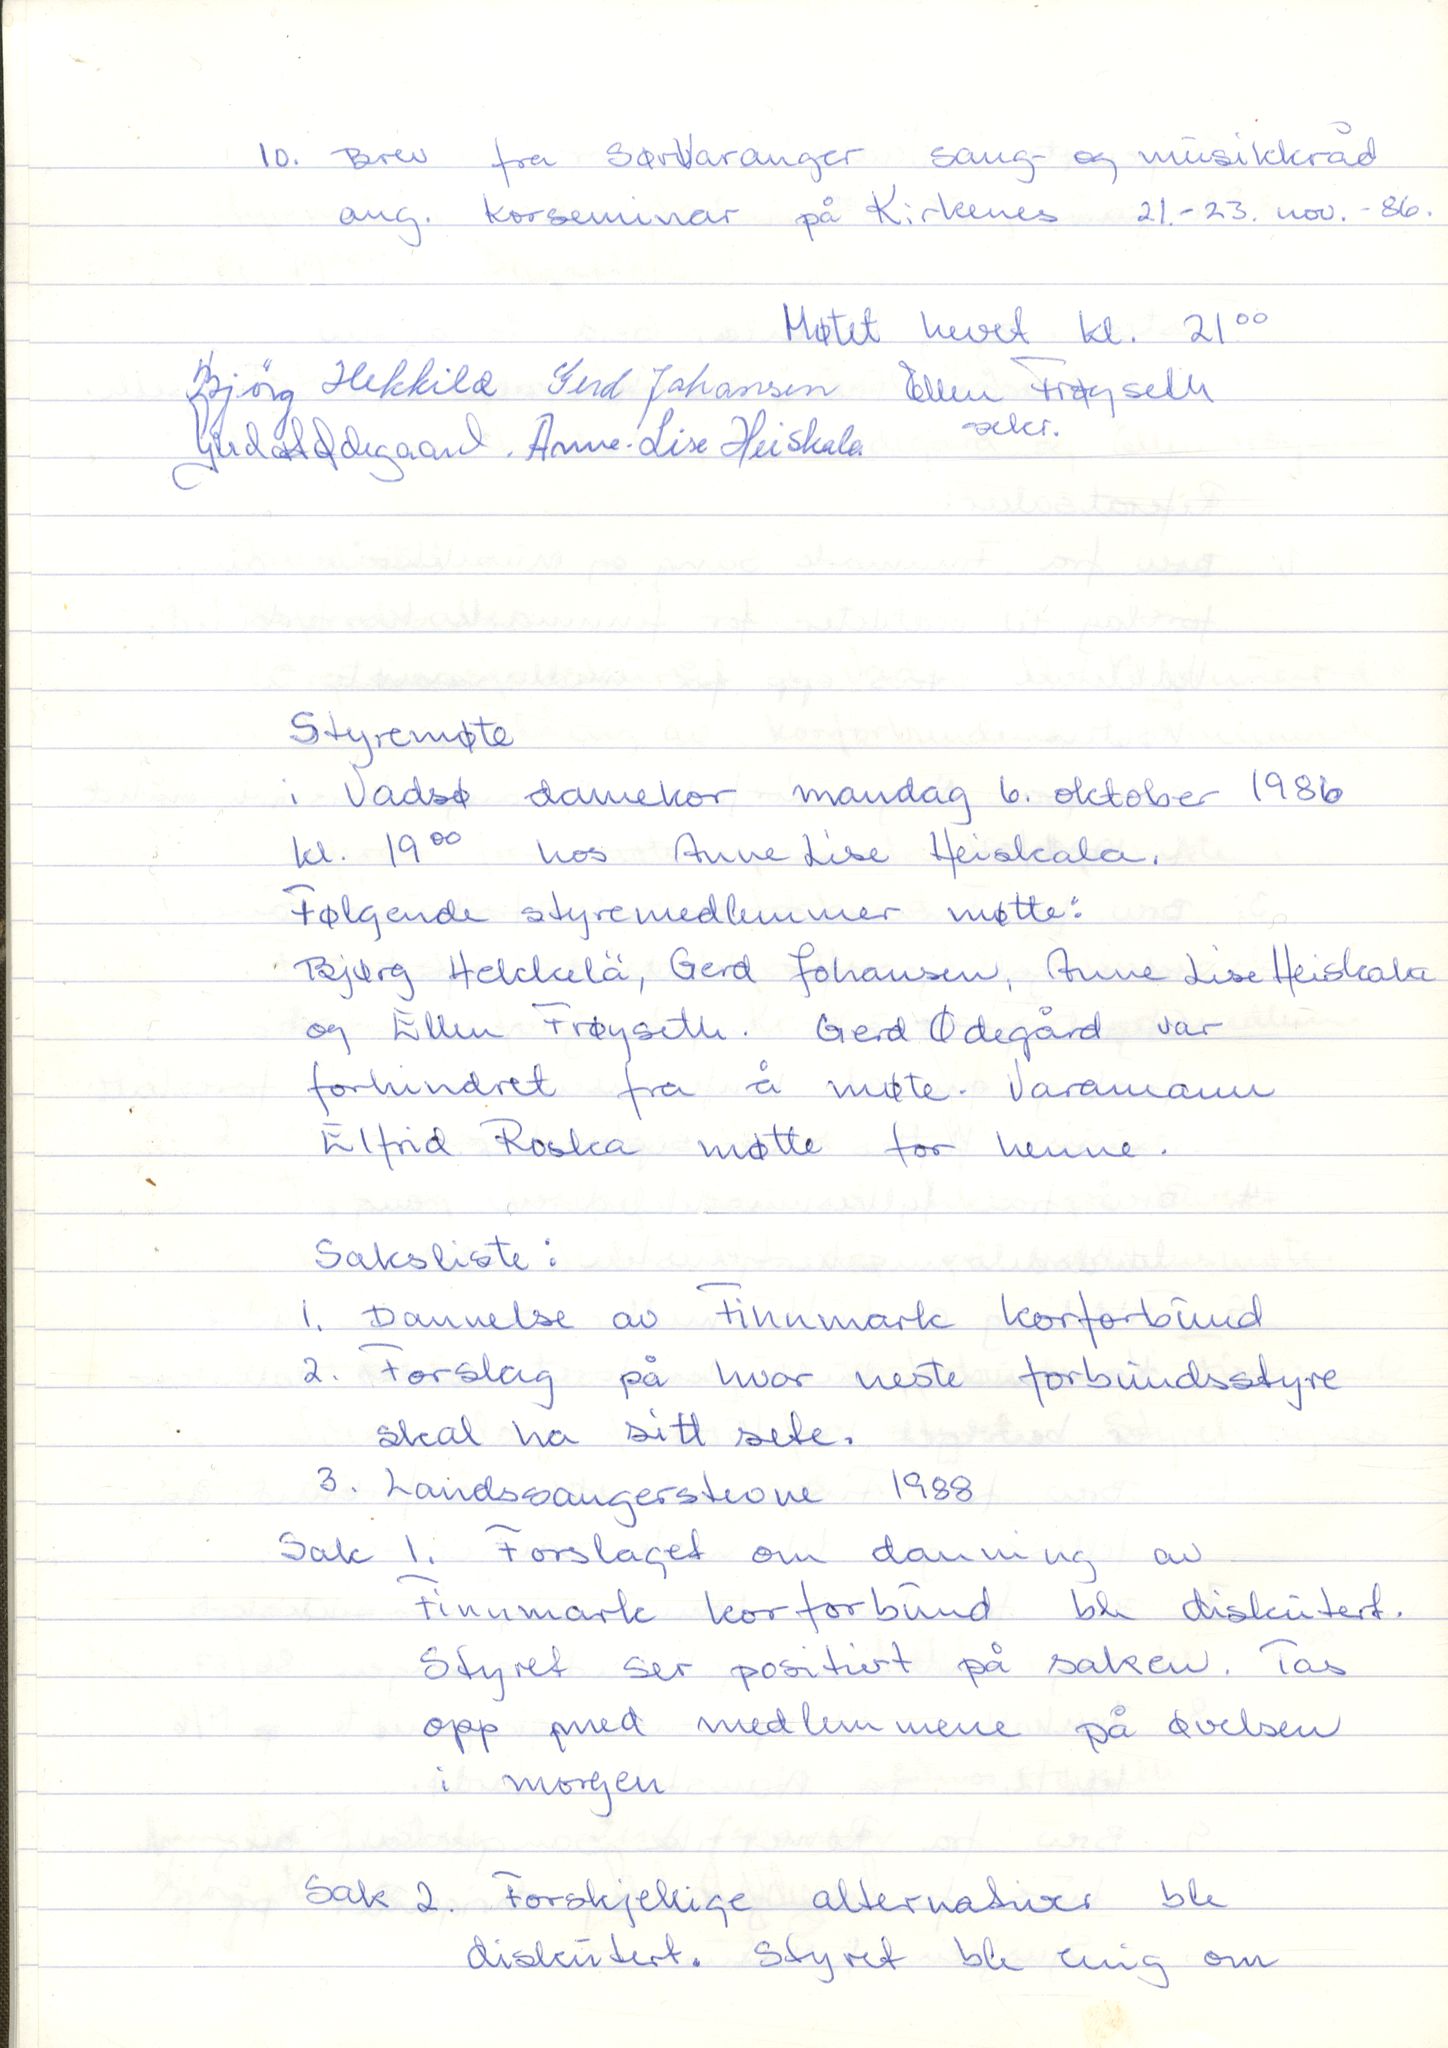 10. Brev fra SørVaranger sang- og musikkråd
ang. korseminar på Kirkenes 21.-23. nov. -86.
Møtet hevet kl. 21⁰⁰
Bjørg Hekkilä Gerd Johansen Ellen Frøyseth
sekr.
Gerd Ødegaard. Anne-Lise Heiskala
Styremøte
i Vadsø damekor mandag 6. oktober 1986
kl. 19⁰⁰ hos Anne Lise Heiskala.
Følgende styremedlemmer møtte:
Bjørg Hekkelä, Gerd Johansen, Anne Lise Heiskala
og Ellen Frøyseth. Gerd Ødegård var
forhindret fra å møte. Varamann
Elfrid Roska møtte for henne.
Saksliste:
1. Dannelse av Finnmark korforbund
2. Forslag på hvor neste forbundsstyre
skal ha sitt sete.
3. Landssangerstevne 1988
Sak 1. Forslaget om danning av
Finnmark korforbund ble diskutert.
Styret ser positivt på saken. Tas
opp med medlemmene på øvelsen
i morgen
Sak 2. Forskjellige alternativer ble
diskutert. Styret ble enig om